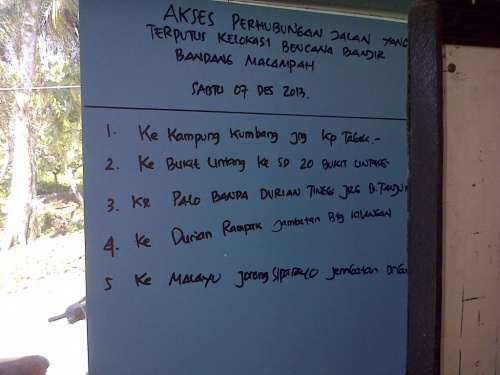 AKSES PERHUBUNGAN JALAN YANG
TERPUTUS KELOKASI BENCANA BANJIR
BANDANG MALAMPAH
SABTU 07 DES 2013.
1. Ke Kampung Kumbang jrg Kp Tabek.-
2. Ke BUKIT Lintang Ke SD 20 BUKIT LINTANG
3. Ke PALO BANDA DURIAN TINGGI JRG B.
4. Ke Durian Rampak Jambatan Btg KILANGAN
5 Ke MALAYU Jorong Siparayo Jembatan